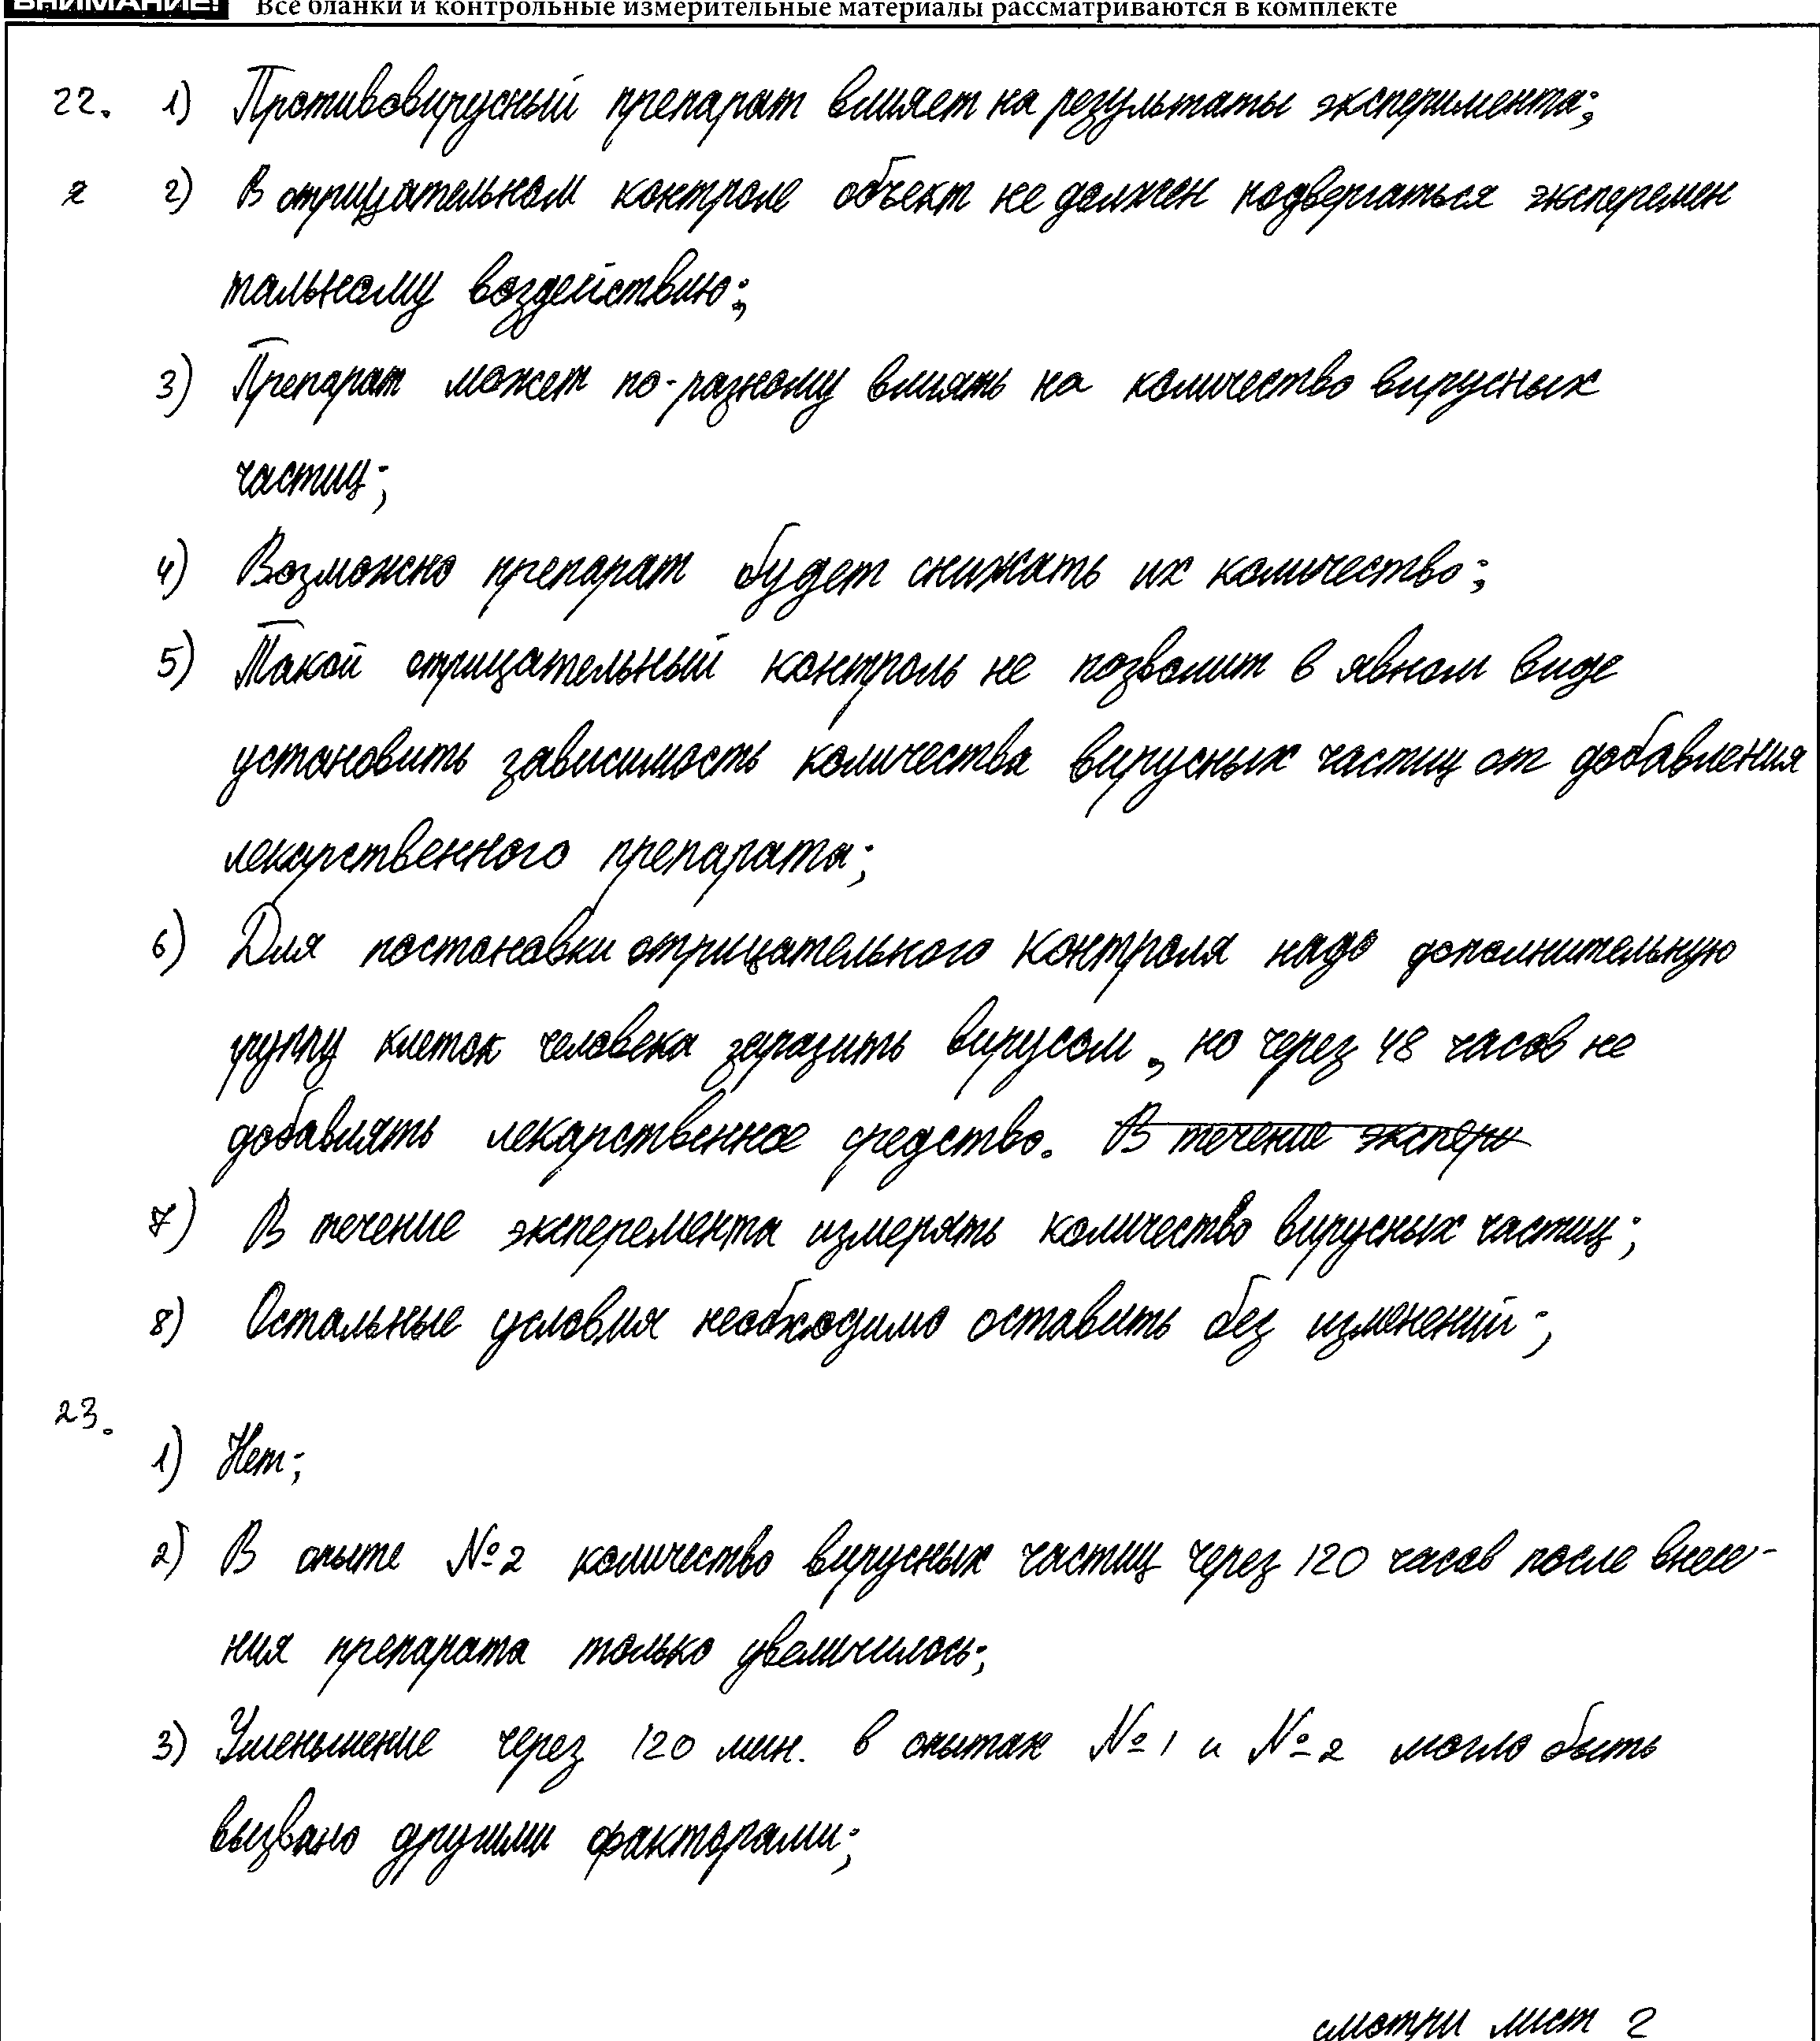 ВНИМАНИЕ! Все бланки и контрольные измерительные материалы рассматриваются в комплекте
22. 1) Противовирусный препарат влияет на результаты эксперимента;
2 2) В отрицательном контроле объект не должен подвергаться эксперемен
тальному воздействию;
3) Препарат может по-разному влиять на количество вирусных
частиц;
4) Возможно препарат будет снижать их количество;
5) Такой отрицательный контроль не позволит в явном виде
установить зависимость количества вирусных частиц от добавления
лекарственного препарата;
6) Для постановки отрицательного контроля надо дополнительную
группу клеток человека заразить вирусом, но через 48 часов не
добавлять лекарственное средство. В течение экспери
7) В течение эксперемента измерять количество вирусных частиц;
8) Остальные условия необходимо оставить без изменений;
23.
1) Нет;
2) В опыте №2 количество вирусных частиц через 120 часов после внесе-
ния препарата только увеличилось;
3) Уменьшение через 120 мин. в опытах №1 и №2 могло быть
вызвано другими факторами;
смотри лист 2